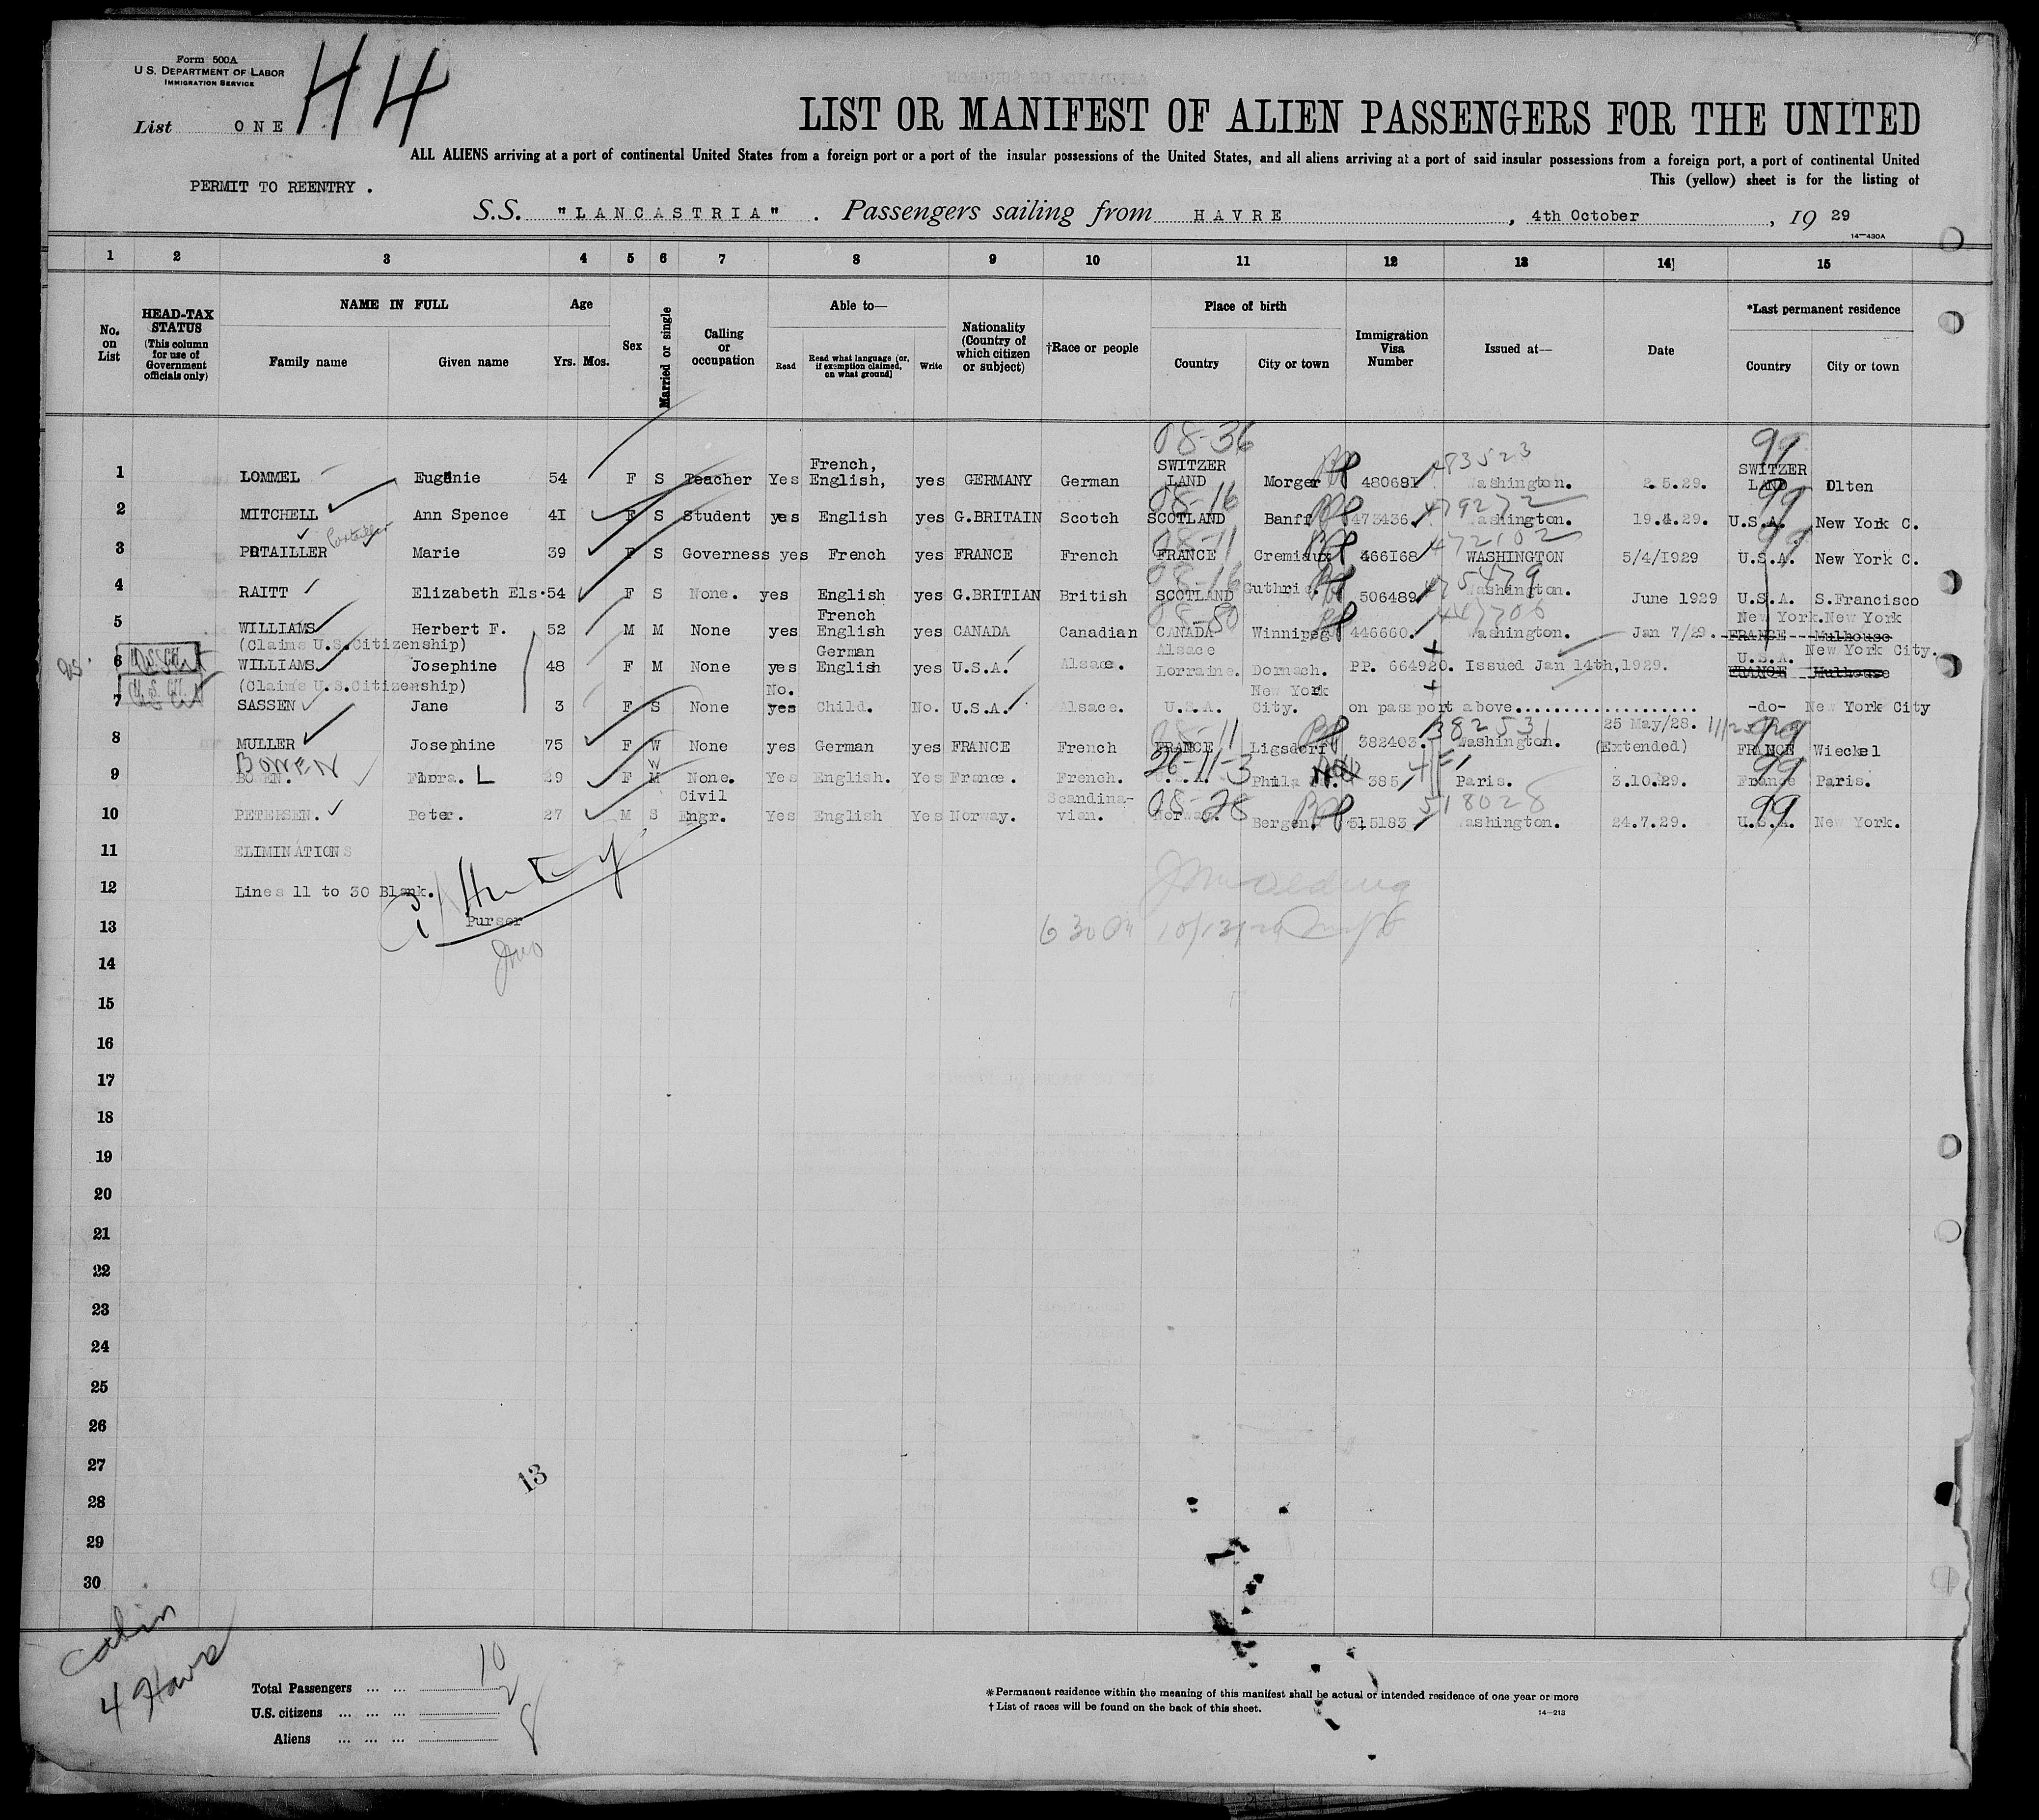 Form 500A
U.S. DEPARTMENT OF LABOR
IMMIGRATION SERVICE
H4
List ONE
LIST OR MANIFEST OF ALIEN PASSENGERS FOR THE UNITED
ALL ALIENS arriving at a port of continental United States from a foreign port or a port of the insular possessions of the United States, and all aliens arriving at a port of said insular possessions from a foreign port, a port of continental United
This (yellow) sheet is for the listing of
PERMIT TO REENTRY .
S.S. "LANCASTRIA" . Passengers sailing from HAVRE , 4th October , 19 29
14—430A
1 2 3 4 5 6 7 8 9 10 11 12 13 14 15
No. on List
HEAD-TAX STATUS (This column for use of Government officials only)
NAME IN FULL
Family name Given name
Age
Yrs. Mos.
Sex
Married or single
Calling or occupation
Able to—
Read
Read what language (or, if exemption claimed, on what ground)
Write
Nationality (Country of which citizen or subject)
†Race or people
Place of birth
Country City or town
Immigration Visa Number
Issued at—
Date
*Last permanent residence
Country City or town
08-36 99
1 LOMMEL Eugenie 54 F S Teacher Yes French, English, yes GERMANY German SWITZER LAND Morger 480681 483523 Washington. 2.5.29. SWITZER LAND Olten
08-16 99
2 MITCHELL Ann Spence 41 F S Student yes English yes G.BRITAIN Scotch SCOTLAND Banff 473436. 479272 Washington. 19.4.29. U.S.A. New York C.
Portailler
08-11 99
3 PORTAILLER Marie 39 F S Governess yes French yes FRANCE French FRANCE Cremiaux 466168 472102 WASHINGTON 5/4/1929 U.S.A. New York C.
08-16
4 RAITT Elizabeth Els. 54 F S None. yes English yes G.BRITIAN British SCOTLAND Guthrie. 506489 475479 Washington. June 1929 U.S.A. S.Francisco
08-80 New York. New York
5 WILLIAMS Herbert F. 52 M M None yes French English yes CANADA Canadian CANADA Winnipeg 446660. 447706 Washington. Jan 7/29. FRANCE Mulhouse
(Claims U.S.Citizenship)
6 WILLIAMS Josephine 48 F M None yes German English yes U.S.A. Alsace. Alsace Lorraine. Dornach. PP. 664920. Issued Jan 14th,1929. U.S.A. New York City. FRANCE Mulhouse
(Claims U.S.Citizenship)
7 SASSEN Jane 3 F S None No. yes Child. No. U.S.A. Alsace. U.S.A. New York City. on passport above................... -do- New York City
08-11 99
8 MULLER Josephine 75 F W None yes German yes FRANCE French FRANCE Ligsdorf 382403. 382531 Washington. 25 May/28. (Extended) FRANCE Wieckel
BOWEN 26-11-3 99
9 BOWEN. Flora. L 29 F M W None. Yes English. Yes France. French. U.S.A. Phila 385 Paris. 3.10.29. France Paris.
08-28 99
10 PETERSEN. Peter. 27 M S Civil Engr. Yes English Yes Norway. Scandina- vian. Norway. Bergen. 515183 518028 Washington. 24.7.29. U.S.A. New York.
11 ELIMINATIONS
12 Lines 11 to 30 Blank.
13 Purser
14
15
16
17
18
19
20
21
22
23
24
25
26
27
13
28
29
30
Cabin
4 Havre
Total Passengers ... ... 10
U.S. citizens ... ... ... 2
Aliens ... ... ... 8
*Permanent residence within the meaning of this manifest shall be actual or intended residence of one year or more
†List of races will be found on the back of this sheet.
14—213